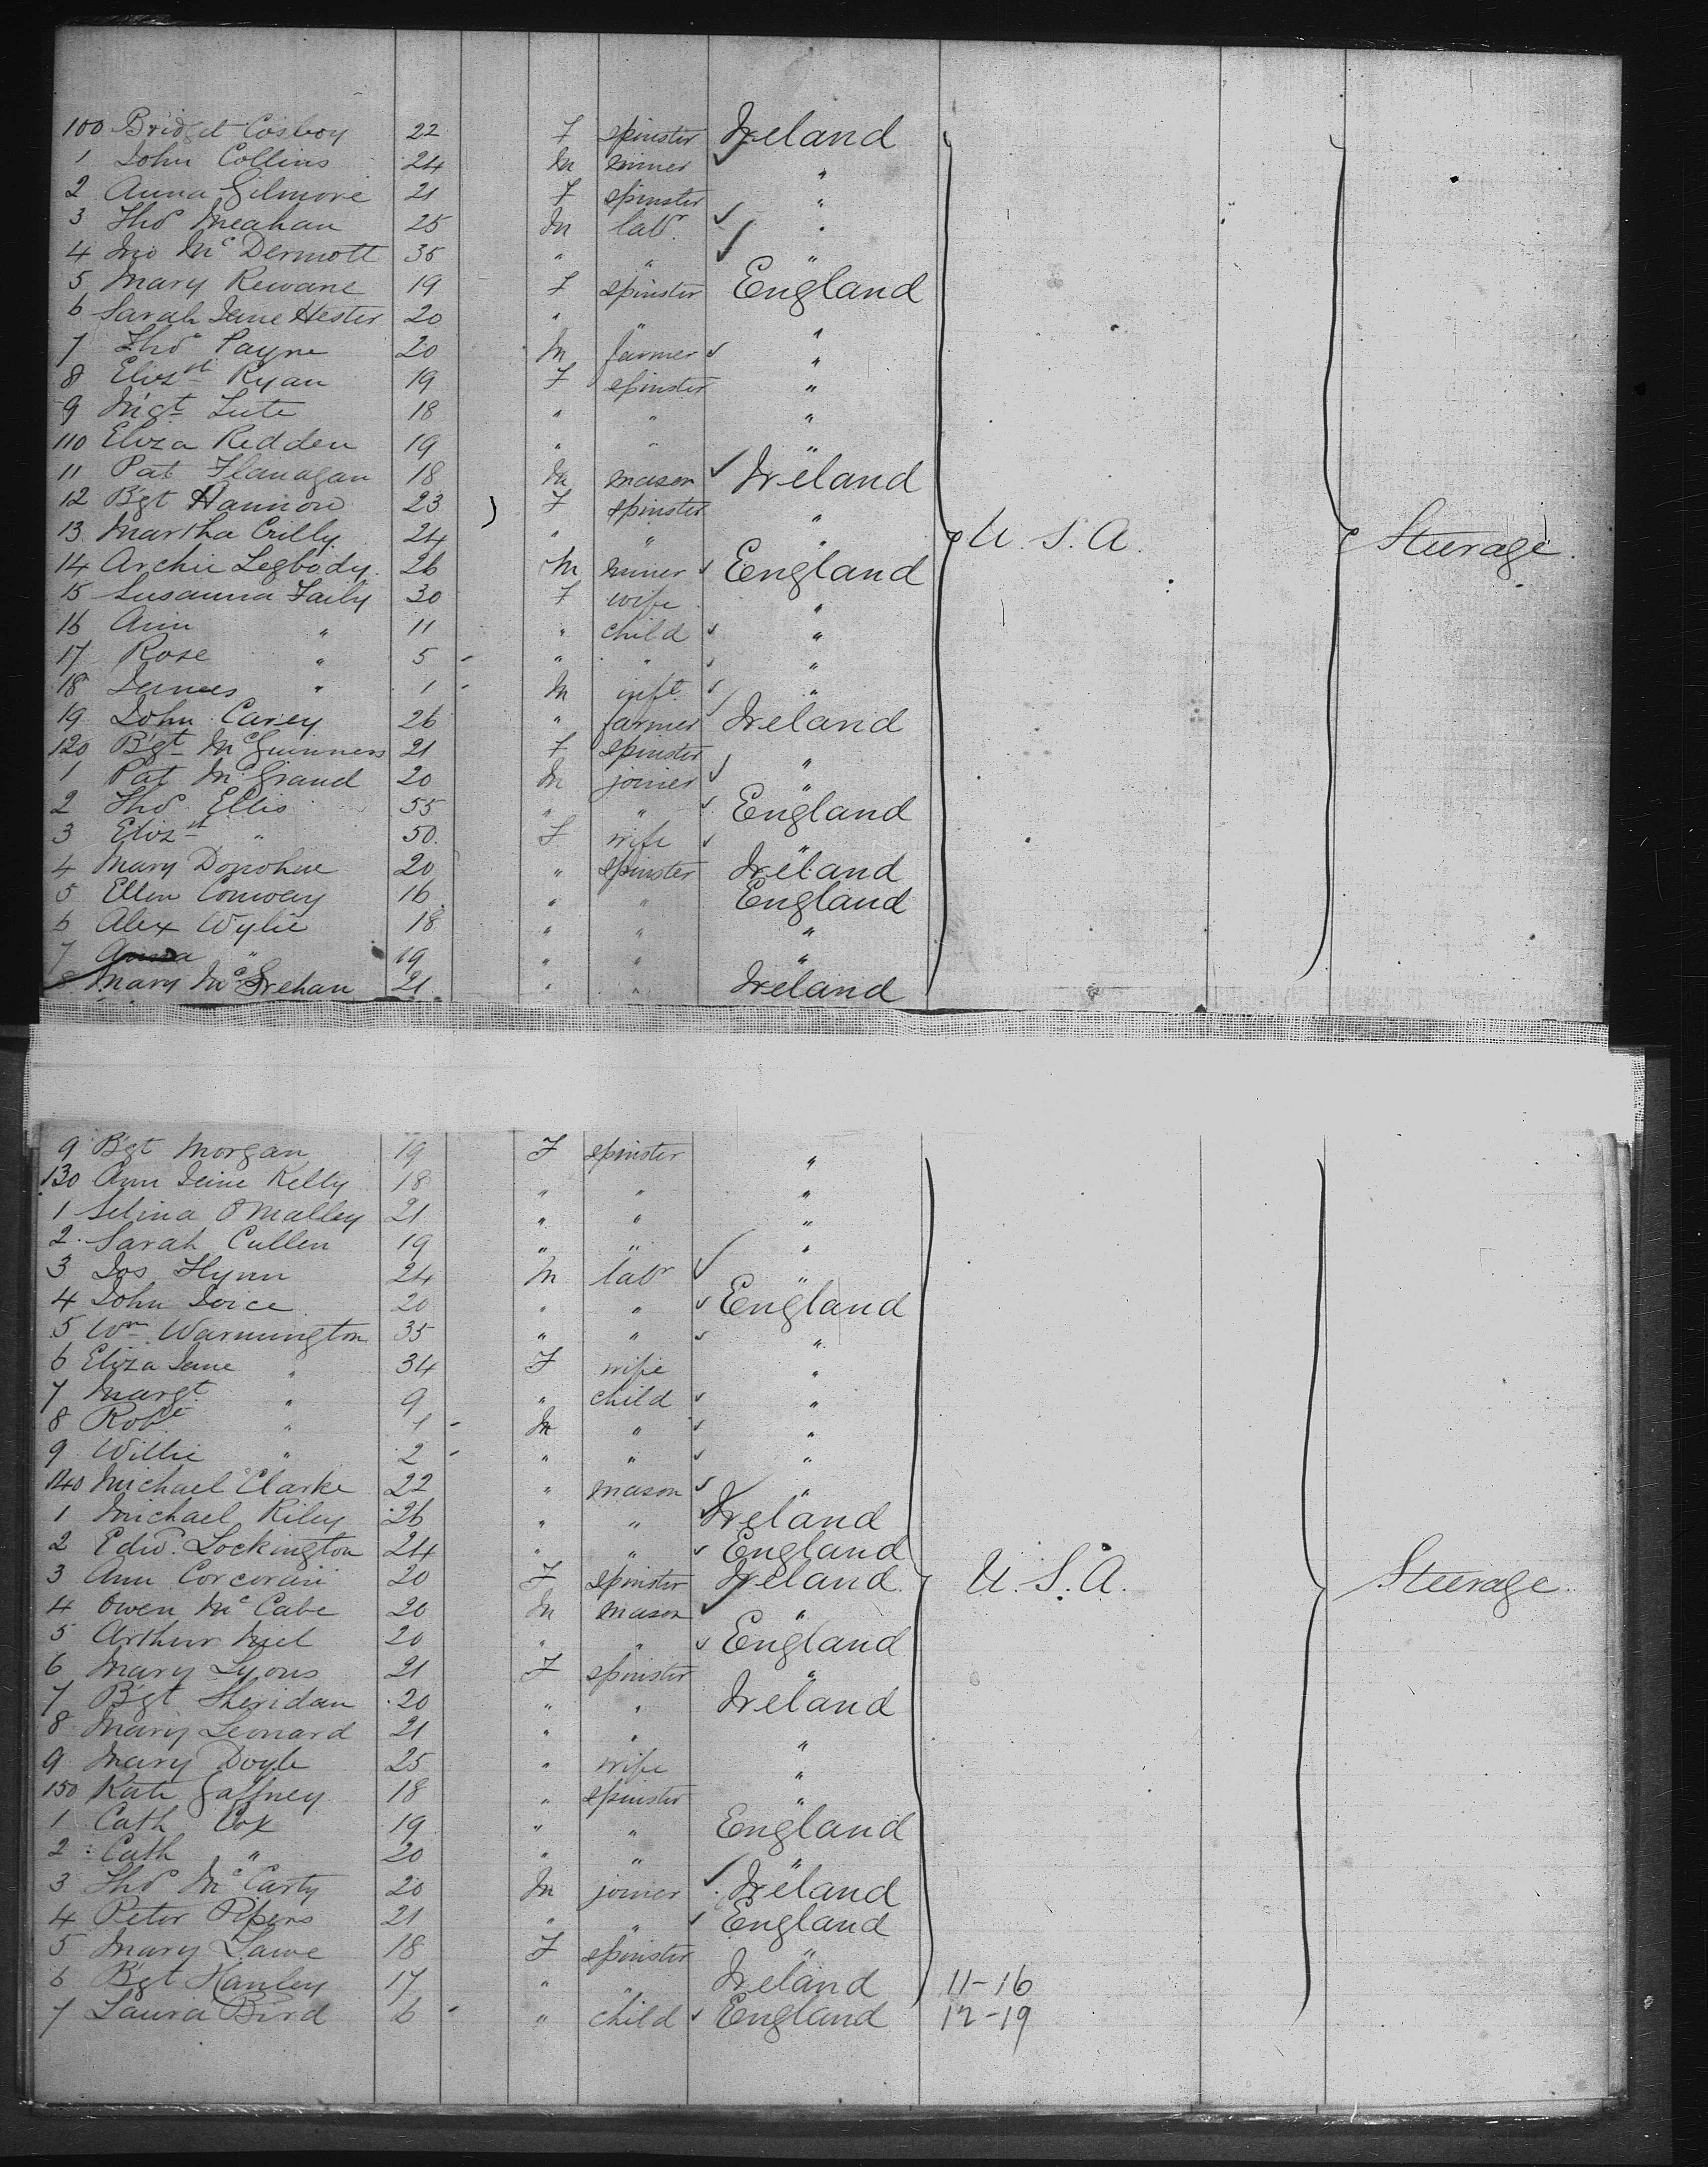 100 Bridget Cosboy 22 F spinster Ireland
1 John Collins 24 M miner "
2 Anna Gilmore 21 F spinster "
3 Thos Meahan 25 M labr "
4 Jno McDermott 35 " " "
5 Mary Rewane 19 F spinster England
6 Sarah Jane Hester 20 " " "
7 Thos Payne 20 M farmer "
8 Elizth Ryan 19 F spinster "
9 Mgt Lute 18 " " "
110 Eliza Redden 19 " " "
11 Pat Flanagan 18 M mason Ireland
12 Bgt Hannon 23 F spinster "
13 Martha Crilly 24 " " "
14 Archie Legbody 26 M miner England
15 Susanna Faily 30 F wife "
16 Ann " 11 " child "
17 Rose " 5 - " " "
18 James " 1 - M inft "
19 John Carey 26 " farmer Ireland
120 Bgt McGuinness 21 F spinster "
1 Pat McGrand 20 M joiner "
2 Thos Ellis 55 " " England
3 Elizth " 50 F wife "
4 Mary Donohue 20 " spinster Ireland
5 Ellen Conway 16 " " England
6 Alex Wylie 18 " " "
7 Anna " 19 " " "
8 Mary McGrehan 21 " " Ireland
U.S.A. Steerage
9 Bgt Morgan 19 F spinster "
130 Ann Jane Kelly 18 " " "
1 Selina OMalley 21 " " "
2 Sarah Cullen 19 " " "
3 Jos Flynn 24 M labr "
4 John Joice 20 " " England
5 Wm Warmington 35 " " "
6 Eliza Jane " 34 F wife "
7 Margt " 9 " child "
8 Robt " 4 - M " "
9 Willie " 2 - " " "
140 Michael Clarke 22 " mason "
1 Michael Riley 26 " " Ireland
2 Edwd Lockington 24 " " England
3 Ann Corcoran 20 F spinster Ireland
4 Owen McCabe 20 M mason "
5 Arthur Niel 20 " " England
6 Mary Lyons 21 F spinster "
7 Bgt Sheridan 20 " " Ireland
8 Mary Leonard 21 " " "
9 Mary Doyle 25 " wife "
150 Kate Gaffney 18 " spinster "
1 Cath Cox 19 " " England
2 Cath " 20 " " "
3 Thos McCarty 20 M joiner Ireland
4 Peter Pipers 21 " " England
5 Mary Lawe 18 F spinster "
6 Bgt Hanley 17 " " Ireland 11-16
7 Laura Bird 6 - " child England 12-19
U.S.A. Steerage